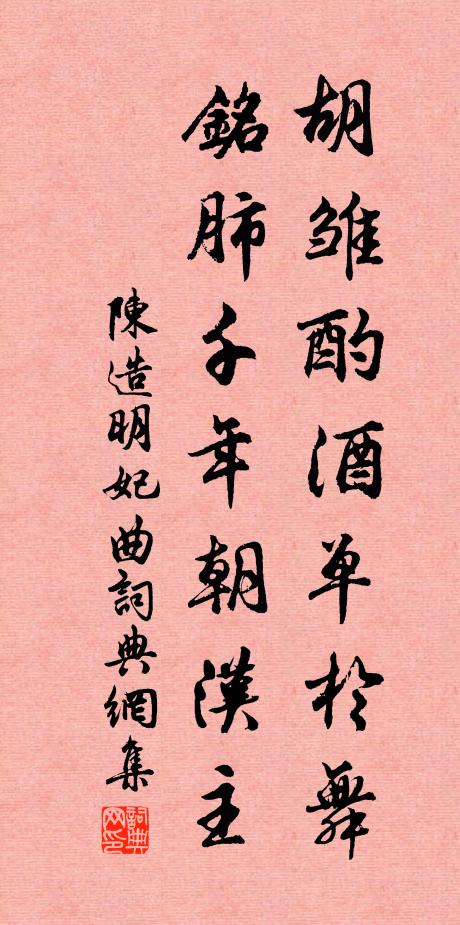 胡雏酌酒单于舞
銘肺千年朝漢主
陳造明妃曲詞典網集
詞典网印